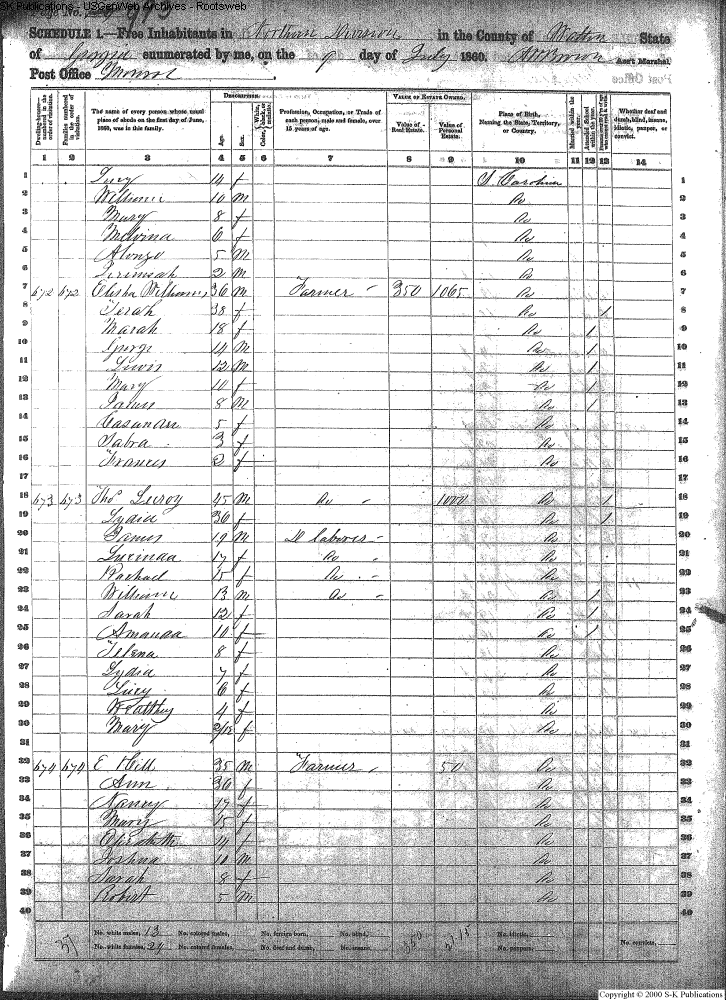 SK Publications - USGenWeb Archives - Rootsweb
Page No.
SCHEDULE 1.—Free Inhabitants in Northern Division in the County of Walton State
of Georgia enumerated by me, on the 9 day of July 1860. Ass't Marshal.
Post Office Monroe
Dwelling-houses—numbered in the order of visitation.
Families numbered in the order of visitation.
The name of every person whose usual place of abode on the first day of June, 1860, was in this family.
DESCRIPTION.
Age.
Sex.
Color, White, black, or mulatto.
Profession, Occupation, or Trade of each person, male and female, over 15 years of age.
VALUE OF ESTATE OWNED.
Value of Real Estate.
Value of Personal Estate.
Place of Birth, Naming the State, Territory, or Country.
Married within the year.
Attended School within the year.
Whether deaf and dumb, blind, insane, idiotic, pauper, or convict.
1 2 3 4 5 6 7 8 9 10 11 12 13 14
1 Lucy 14 f S. Carolina 1
2 William 10 M Do 2
3 Mary 8 f Do 3
4 Melvina 6 f Do 4
5 Alonzo 5 M Do 5
6 Jeremiah 2 M Do 6
7 672 672 Elisha Williams 36 M Farmer 350 1065 Do 7
8 38 f Do 1 8
9 18 f Do 1 9
10 George 14 M Do 1 10
11 Lewis 12 M Do 1 11
12 Mary 10 f Do 1 12
13 James 8 M Do 1 13
14 5 f Do 14
15 3 f Do 15
16 Francis 2 f Do 16
17 17
18 673 673 Thos Leeroy 45 M Do 1000 Do 1 18
19 Lydia 36 f Do 1 19
20 James 19 M D laborer Do 20
21 Lucinda 17 f Do Do 21
22 Rachael 15 f Do Do 22
23 William 13 M Do Do 1 23
24 Sarah 12 f Do 1 24
25 Amanda 10 f Do 1 25
26 8 f Do 26
27 Lydia 7 f Do 27
28 Lucy 6 f Do 28
29 4 f Do 29
30 Mary f Do 30
31 31
32 674 674 E Hill 35 M Farmer 50 Do 32
33 Ann 36 f Do 33
34 Nancy 17 f Do 34
35 15 f Do 35
36 Elizabeth 14 f Do 36
37 Joshua 10 M Do 37
38 Sarah 8 f Do 38
39 Robert 5 M Do 39
40 40
37 No. white males, 13 No. colored males, No. foreign born, No. blind, 350 2115 No. idiotic,
No. white females, 24 No. colored females, No. deaf and dumb, No. insane, No. paupers, No. convicts,
Copyright © 2000 S-K Publications